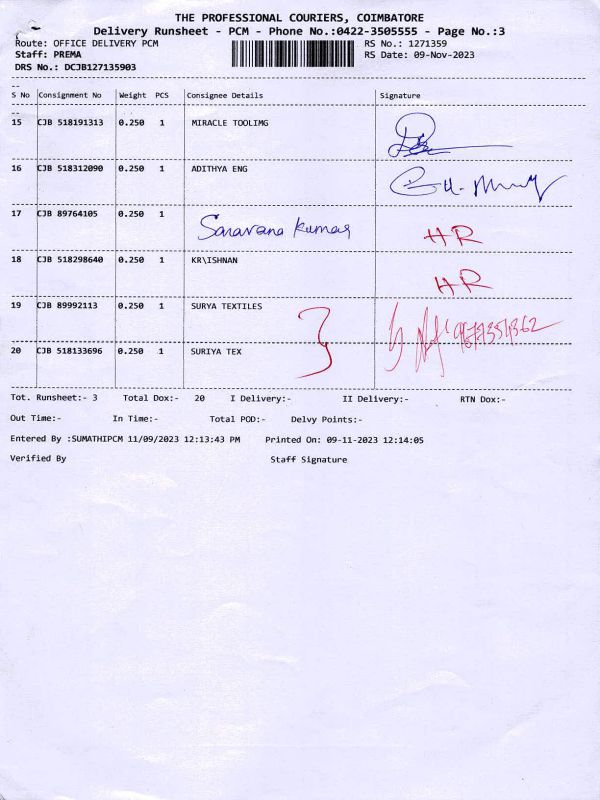 THE PROFESSIONAL COURIERS, COIMBATORE
Delivery Runsheet - PCM - Phone No.:0422-3505555 - Page No.:3
Route: OFFICE DELIVERY PCM RS No.: 1271359
Staff: PREMA RS Date: 09-Nov-2023
DRS No.: DCJB127135903
S No Consignment No Weight PCS Consignee Details Signature
15 CJB 518191313 0.250 1 MIRACLE TOOLIMG
16 CJB 518312090 0.250 1 ADITHYA ENG
17 CJB 89764105 0.250 1 Saravana Kumar HR
18 CJB 518298640 0.250 1 KR\ISHNAN HR
19 CJB 89992113 0.250 1 SURYA TEXTILES
20 CJB 518133696 0.250 1 SURIYA TEX
Tot. Runsheet:- 3 Total Dox:- 20 I Delivery:- II Delivery:- RTN Dox:-
Out Time:- In Time:- Total POD:- Delvy Points:-
Entered By :SUMATHIPCM 11/09/2023 12:13:43 PM Printed On: 09-11-2023 12:14:05
Verified By Staff Signature